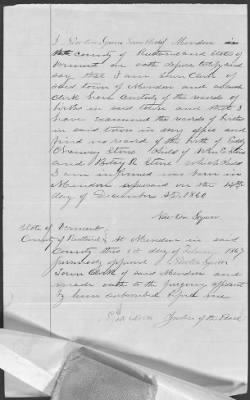 I Newton Squier Town Clerk of Mendon in
the County of Rutland and State of
Vermont on oath depose testify and
say that I am Town Clerk of
said town of Mendon and as such
Clerk have Custody of the records of
births in said town and that I
have examined the records of births
in said town in my office and
find no record of the birth of
Stone Child of John C Stone
and Betsey R Stone which Child
I am informed was born in
Mendon aforesaid on the
day of December AD 1860
Newton Squier
State of Vermont
County of Rutland At Mendon in said
County this 1st day of 1867
personally appeared Newton Squier
Town Clerk of said Mendon and
made oath to the foregoing
by him subscribed before me
Justice of the Peace